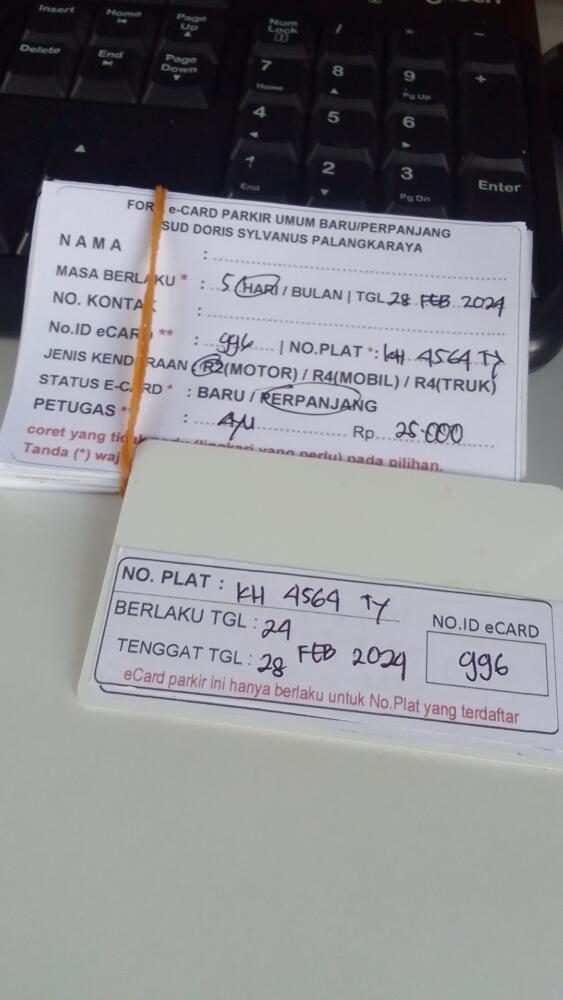 Insert Home Page Up Num Lock / * -
Delete End Page Down 7 Home 8 9 Pg Up +
4 5 6
1 End 2 3 Pg Dn Enter
FOR e-CARD PARKIR UMUM BARU/PERPANJANG
SUD DORIS SYLVANUS PALANGKARAYA
NAMA :
MASA BERLAKU * : 5 HARI / BULAN | TGL 28 FEB 2024
NO. KONTAK :
No.ID eCARD ** : 996 | NO.PLAT *: KH 4564 TY
JENIS KENDARAAN R2(MOTOR) / R4(MOBIL) / R4(TRUK)
STATUS E-CARD * : BARU / PERPANJANG
PETUGAS ** : Rp. 25.000
coret yang (lingkari yang perlu) pada pilihan.
Tanda (*) waj
NO. PLAT : KH 4564 TY
BERLAKU TGL : 24
TENGGAT TGL : 28 FEB 2024
NO.ID eCARD
996
eCard parkir ini hanya berlaku untuk No.Plat yang terdaftar